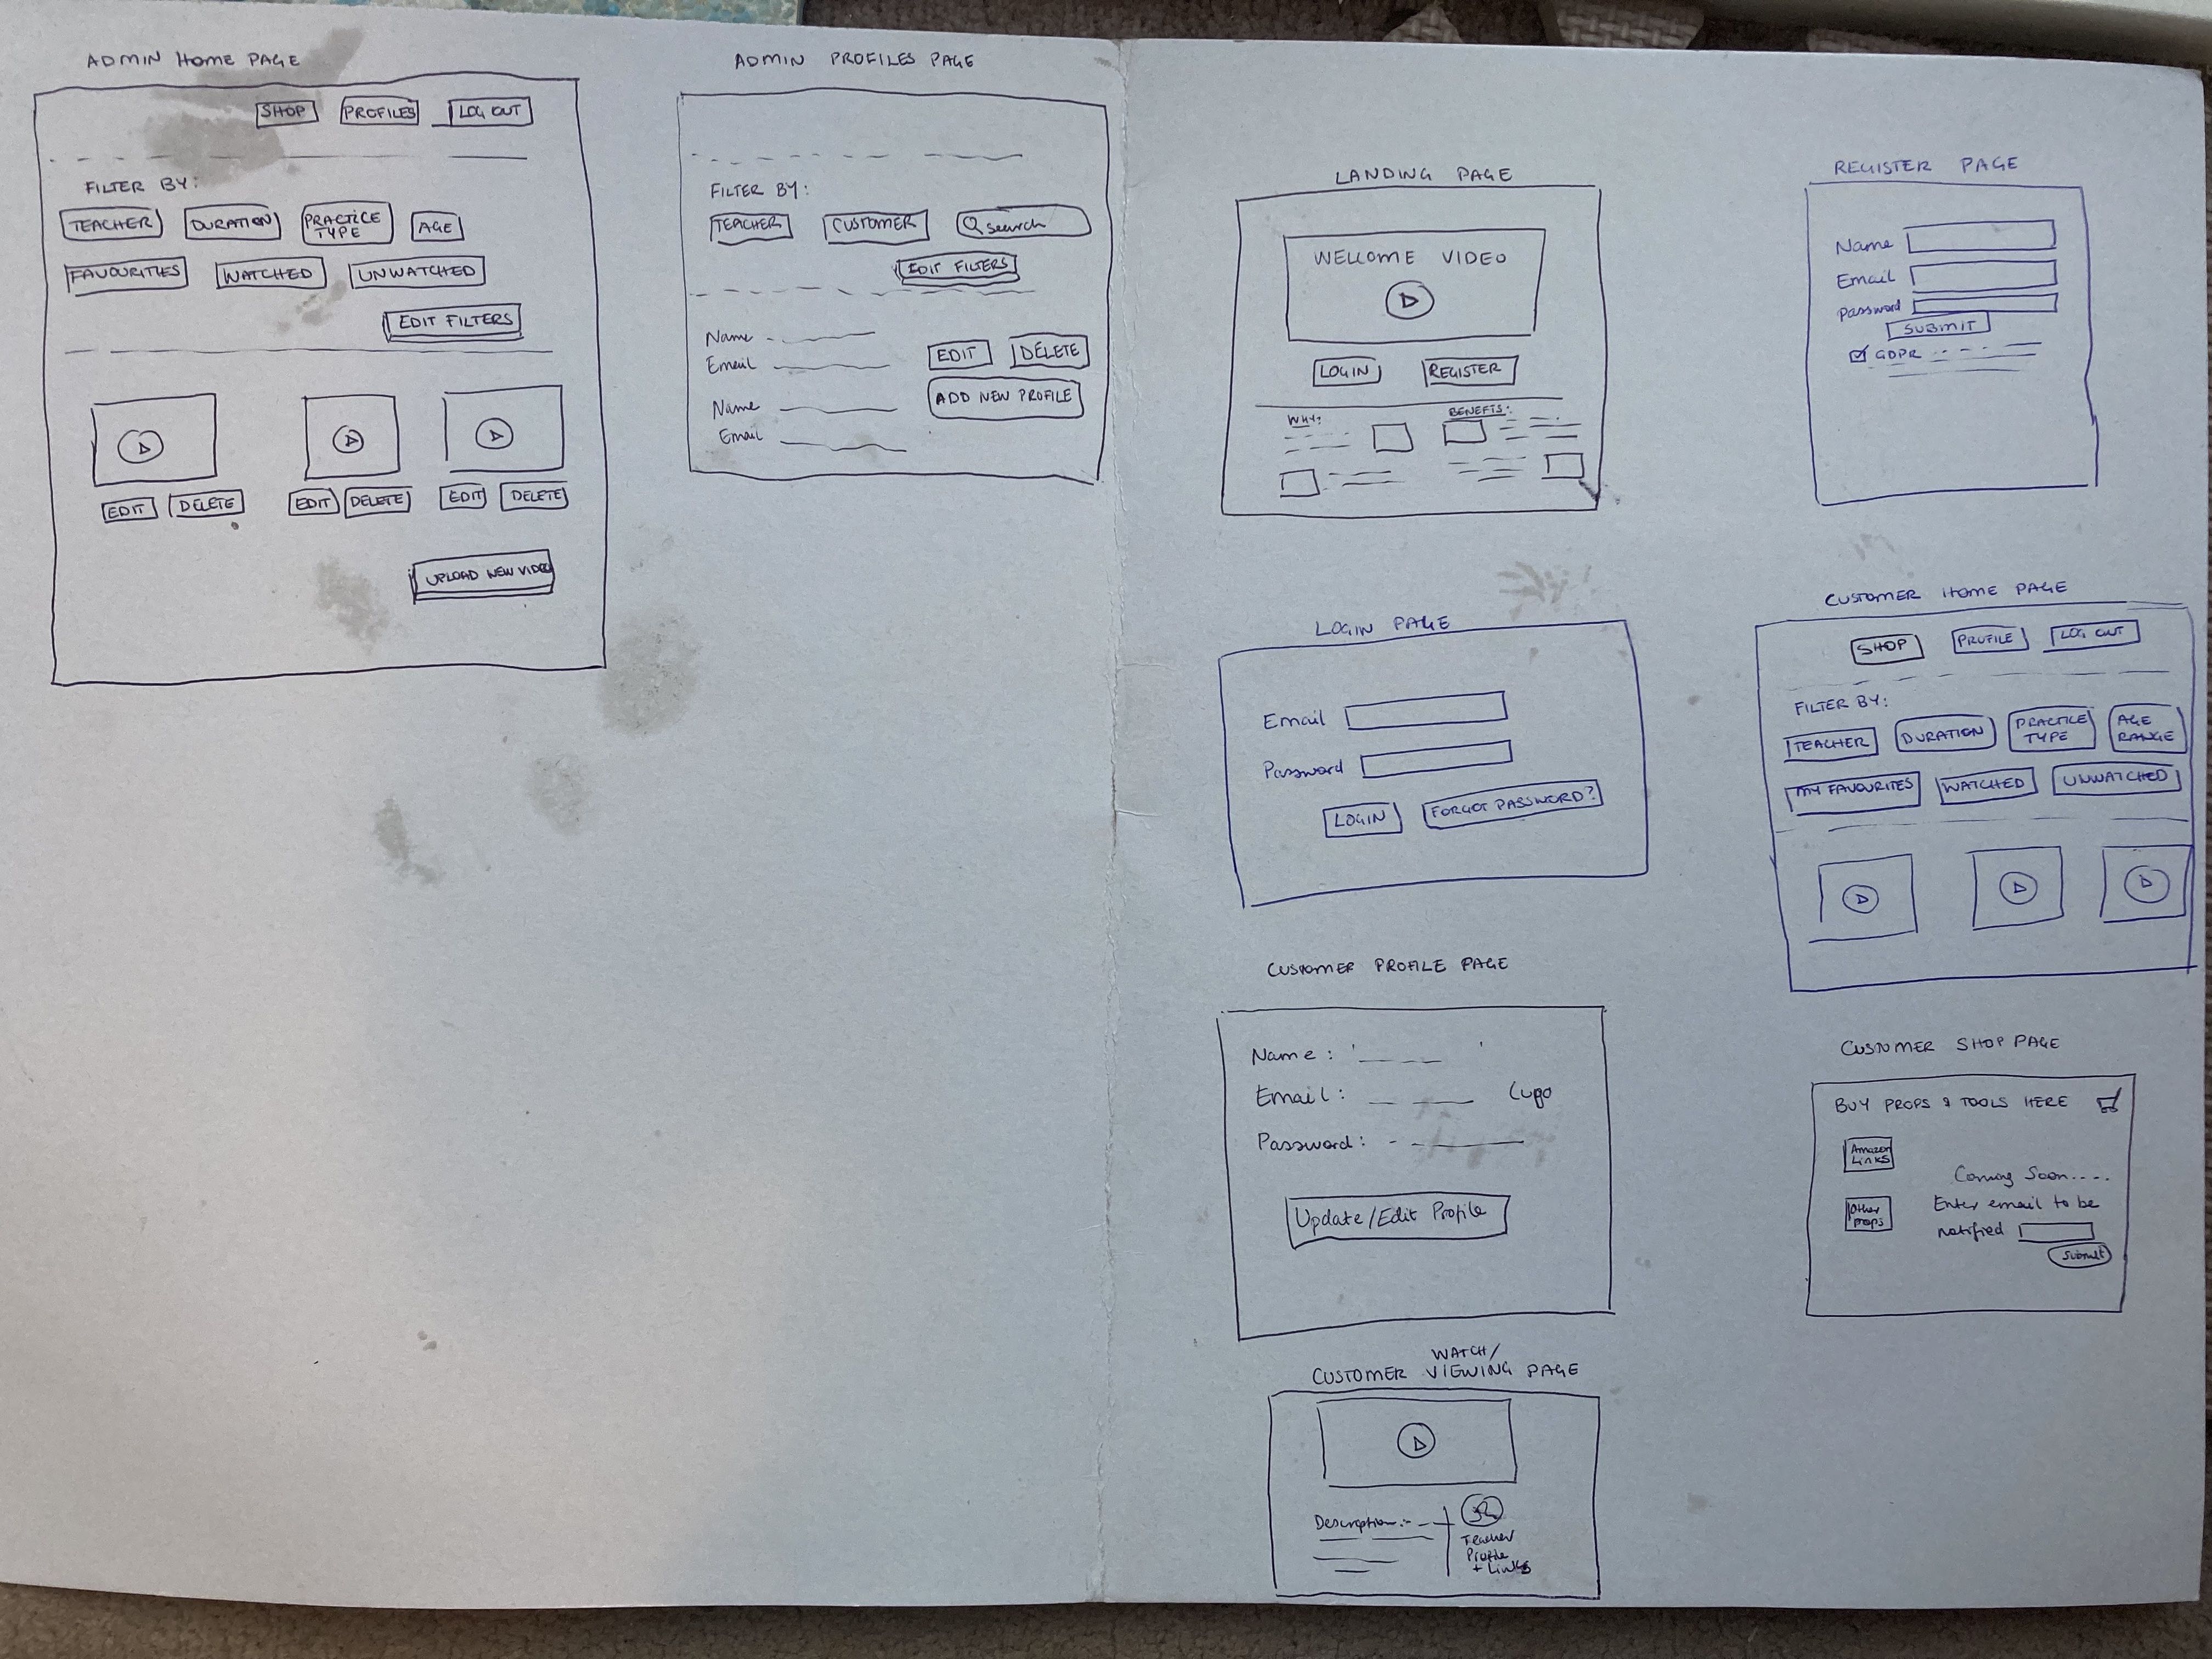 ADMIN HOME PAGE
SHOP PROFILES LOG OUT
FILTER BY:
TEACHER DURATION PRACTICE TYPE AGE
FAVOURITIES WATCHED UNWATCHED
EDIT FILTERS
EDIT DELETE EDIT DELETE EDIT DELETE
UPLOAD NEW VIDEO
ADMIN PROFILES PAGE
FILTER BY:
TEACHER CUSTOMER search
EDIT FILTERS
Name
Email
EDIT DELETE
Name
Email
ADD NEW PROFILE
LANDING PAGE
WELCOME VIDEO
LOGIN REGISTER
WHY: BENEFITS:
REGISTER PAGE
Name
Email
Password
SUBMIT
GDPR
LOGIN PAGE
Email
Password
LOGIN FORGOT PASSWORD?
CUSTOMER HOME PAGE
SHOP PROFILE LOG OUT
FILTER BY:
TEACHER DURATION PRACTICE TYPE AGE RANGE
MY FAVOURITES WATCHED UNWATCHED
CUSTOMER PROFILE PAGE
Name:
Email:
Password:
Update/Edit Profile
CUSTOMER SHOP PAGE
BUY PROPS & TOOLS HERE
Amazon
Links
Coming Soon....
Other
props
Enter email to be
notified
Submit
WATCH/
CUSTOMER VIEWING PAGE
Description:-
Teacher
Profile
+ Links